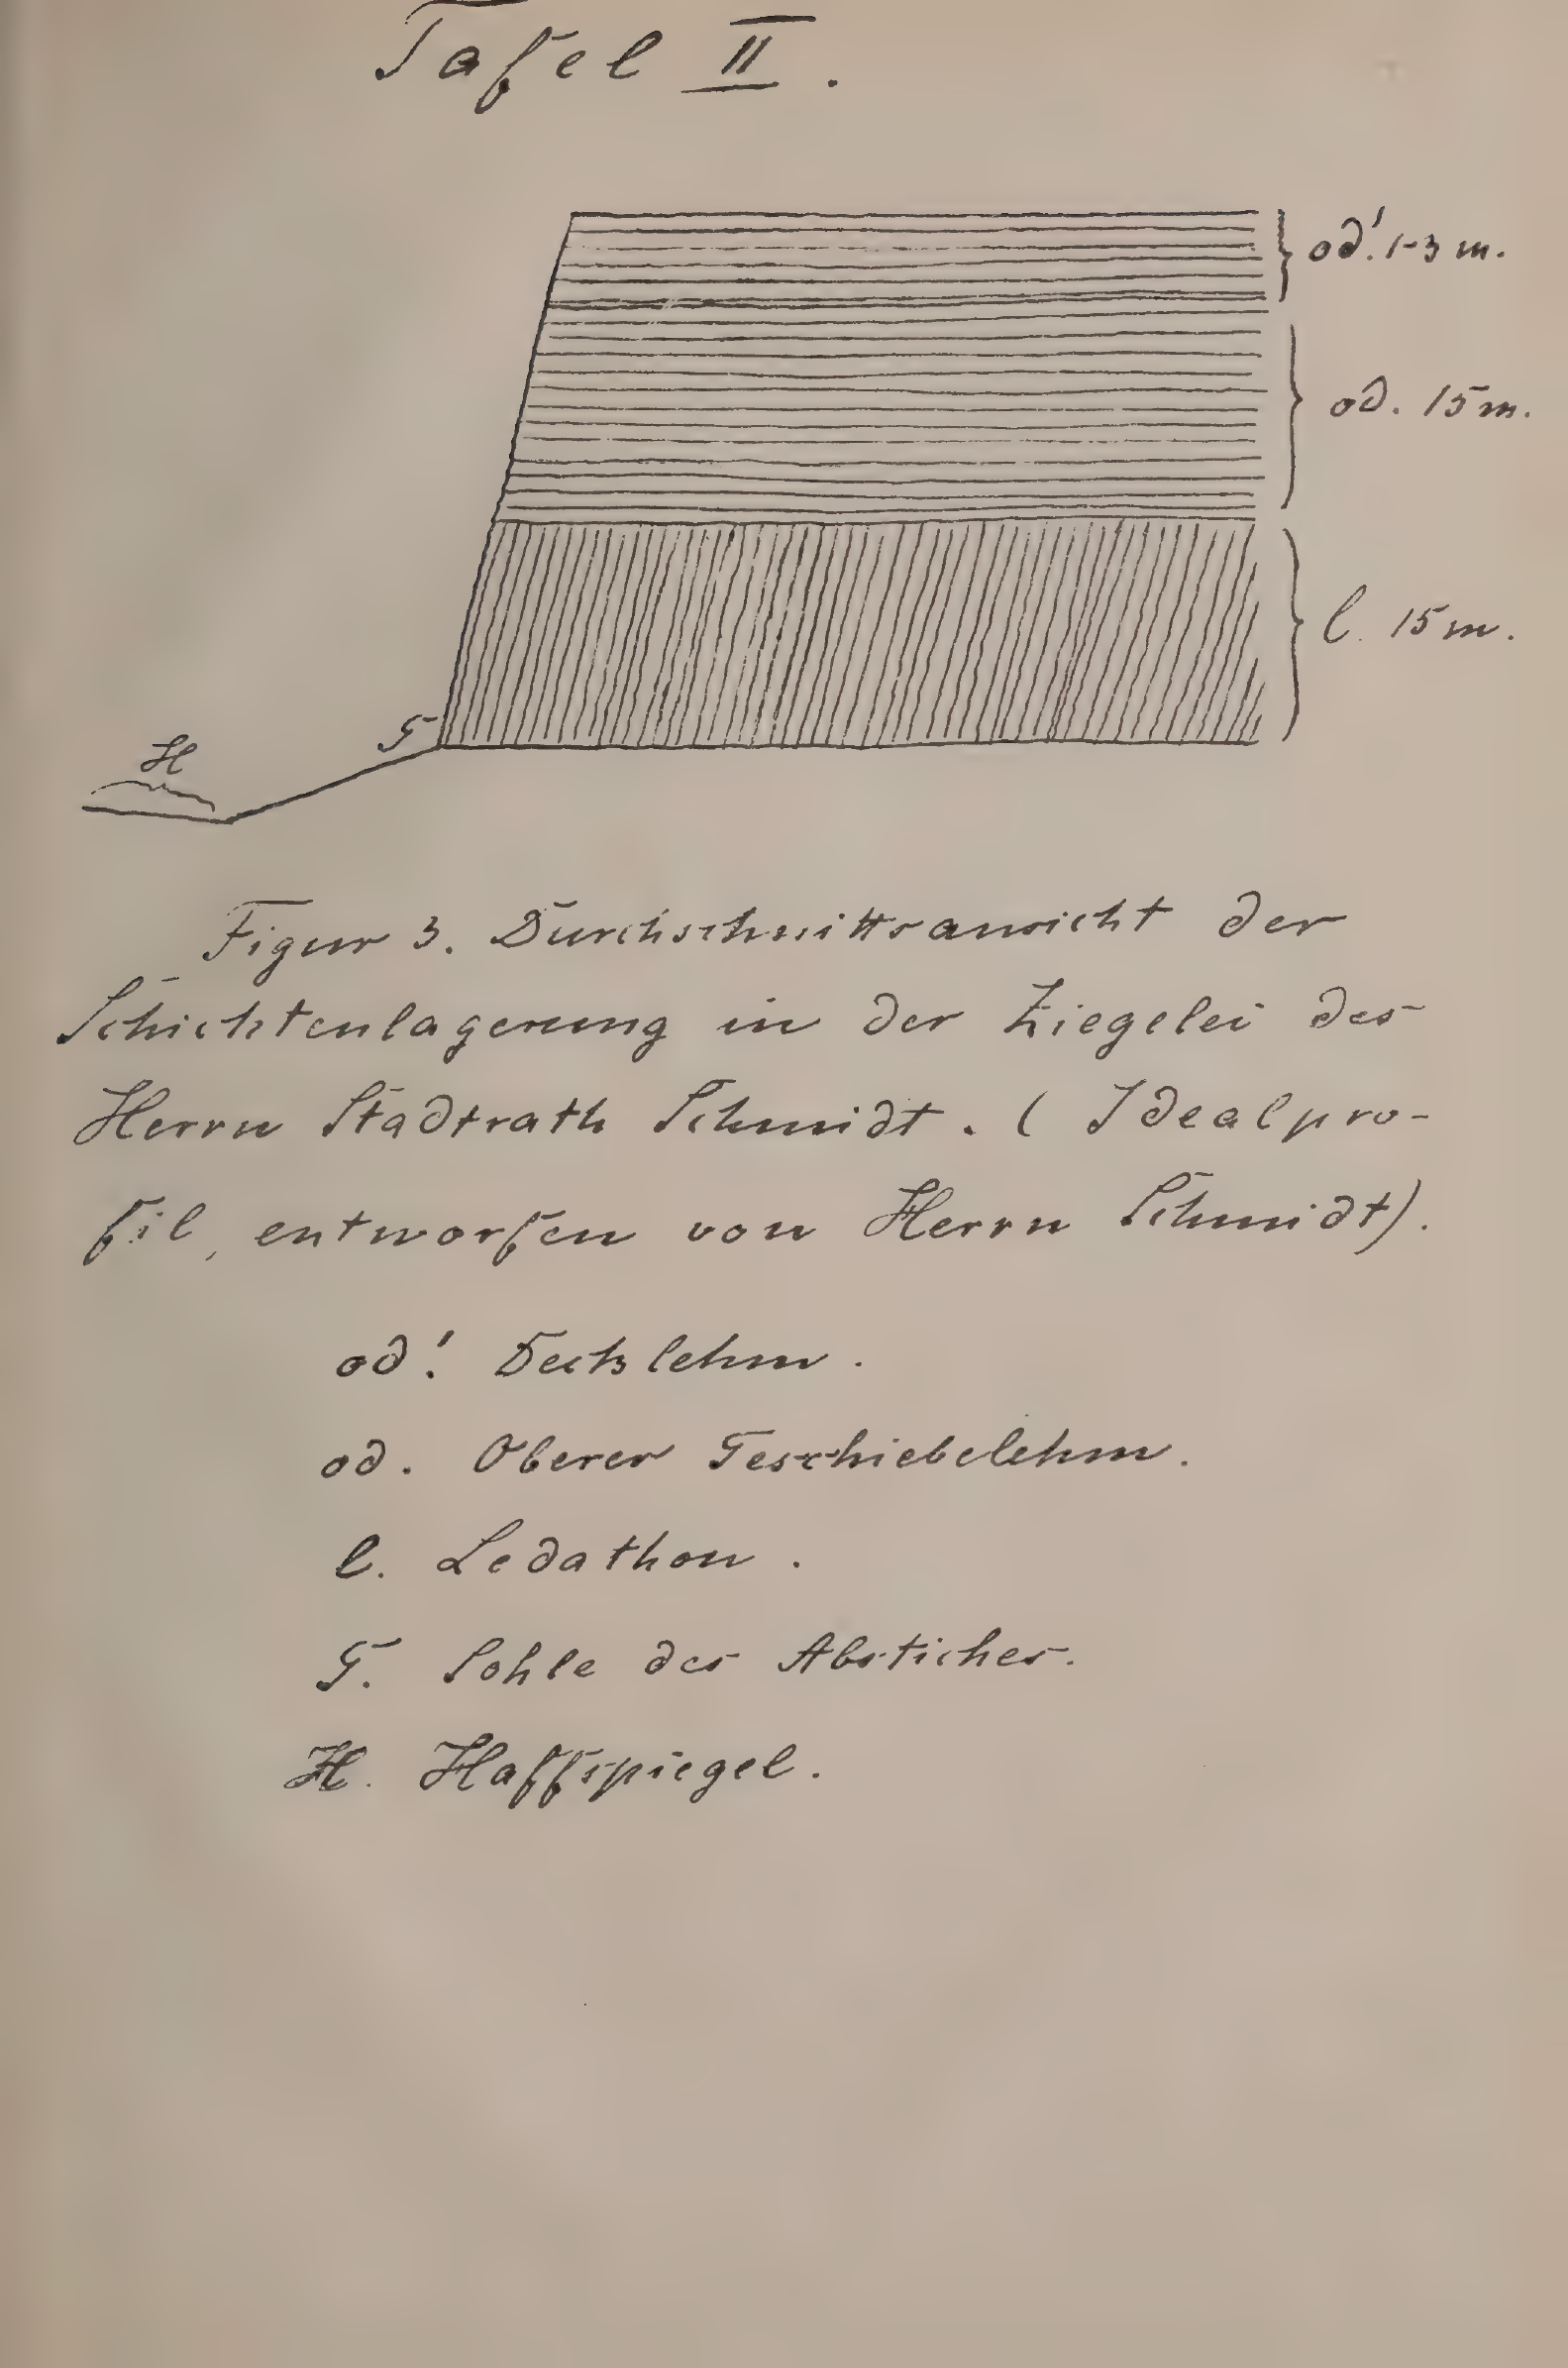 Tafel II.
od'. 1-3 m.
od. 15 m.
l. 15 m.
G
H
Figur 3. Durchschnittsansicht der
Schichtenlagerung in der Ziegelei des
Herrn Stadtrath Schmidt. (Idealpro-
fil, entworfen von Herrn Schmidt).
od'. Decklehm.
od. Oberer Geschiebelehm.
l. Ledathon.
G. Sohle des Abstiches.
H. Haffspiegel.